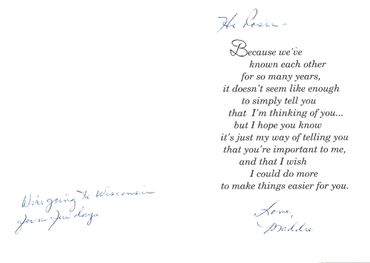 We're going to Wisconsin
for a few days
Hi
Because we've
known each other
for so many years,
it doesn't seem like enough
to simply tell you
that I'm thinking of you...
but I hope you know
it's just my way of telling you
that you're important to me,
and that I wish
I could do more
to make things easier for you.
Love,